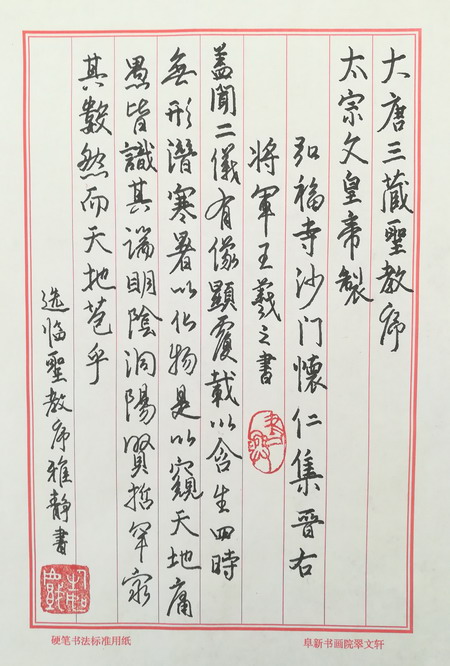 大唐三藏聖教序
太宗文皇帝製
弘福寺沙门懷仁集晉右
将軍王羲之書
蓋聞二儀有像顯覆載以含生四時
無形潛寒暑以化物是以窺天地庸
愚皆識其端明陰洞陽賢哲罕窮
其數然而天地苞乎
选临聖教序雅静書
硬笔书法标准用纸
阜新书画院翠文轩